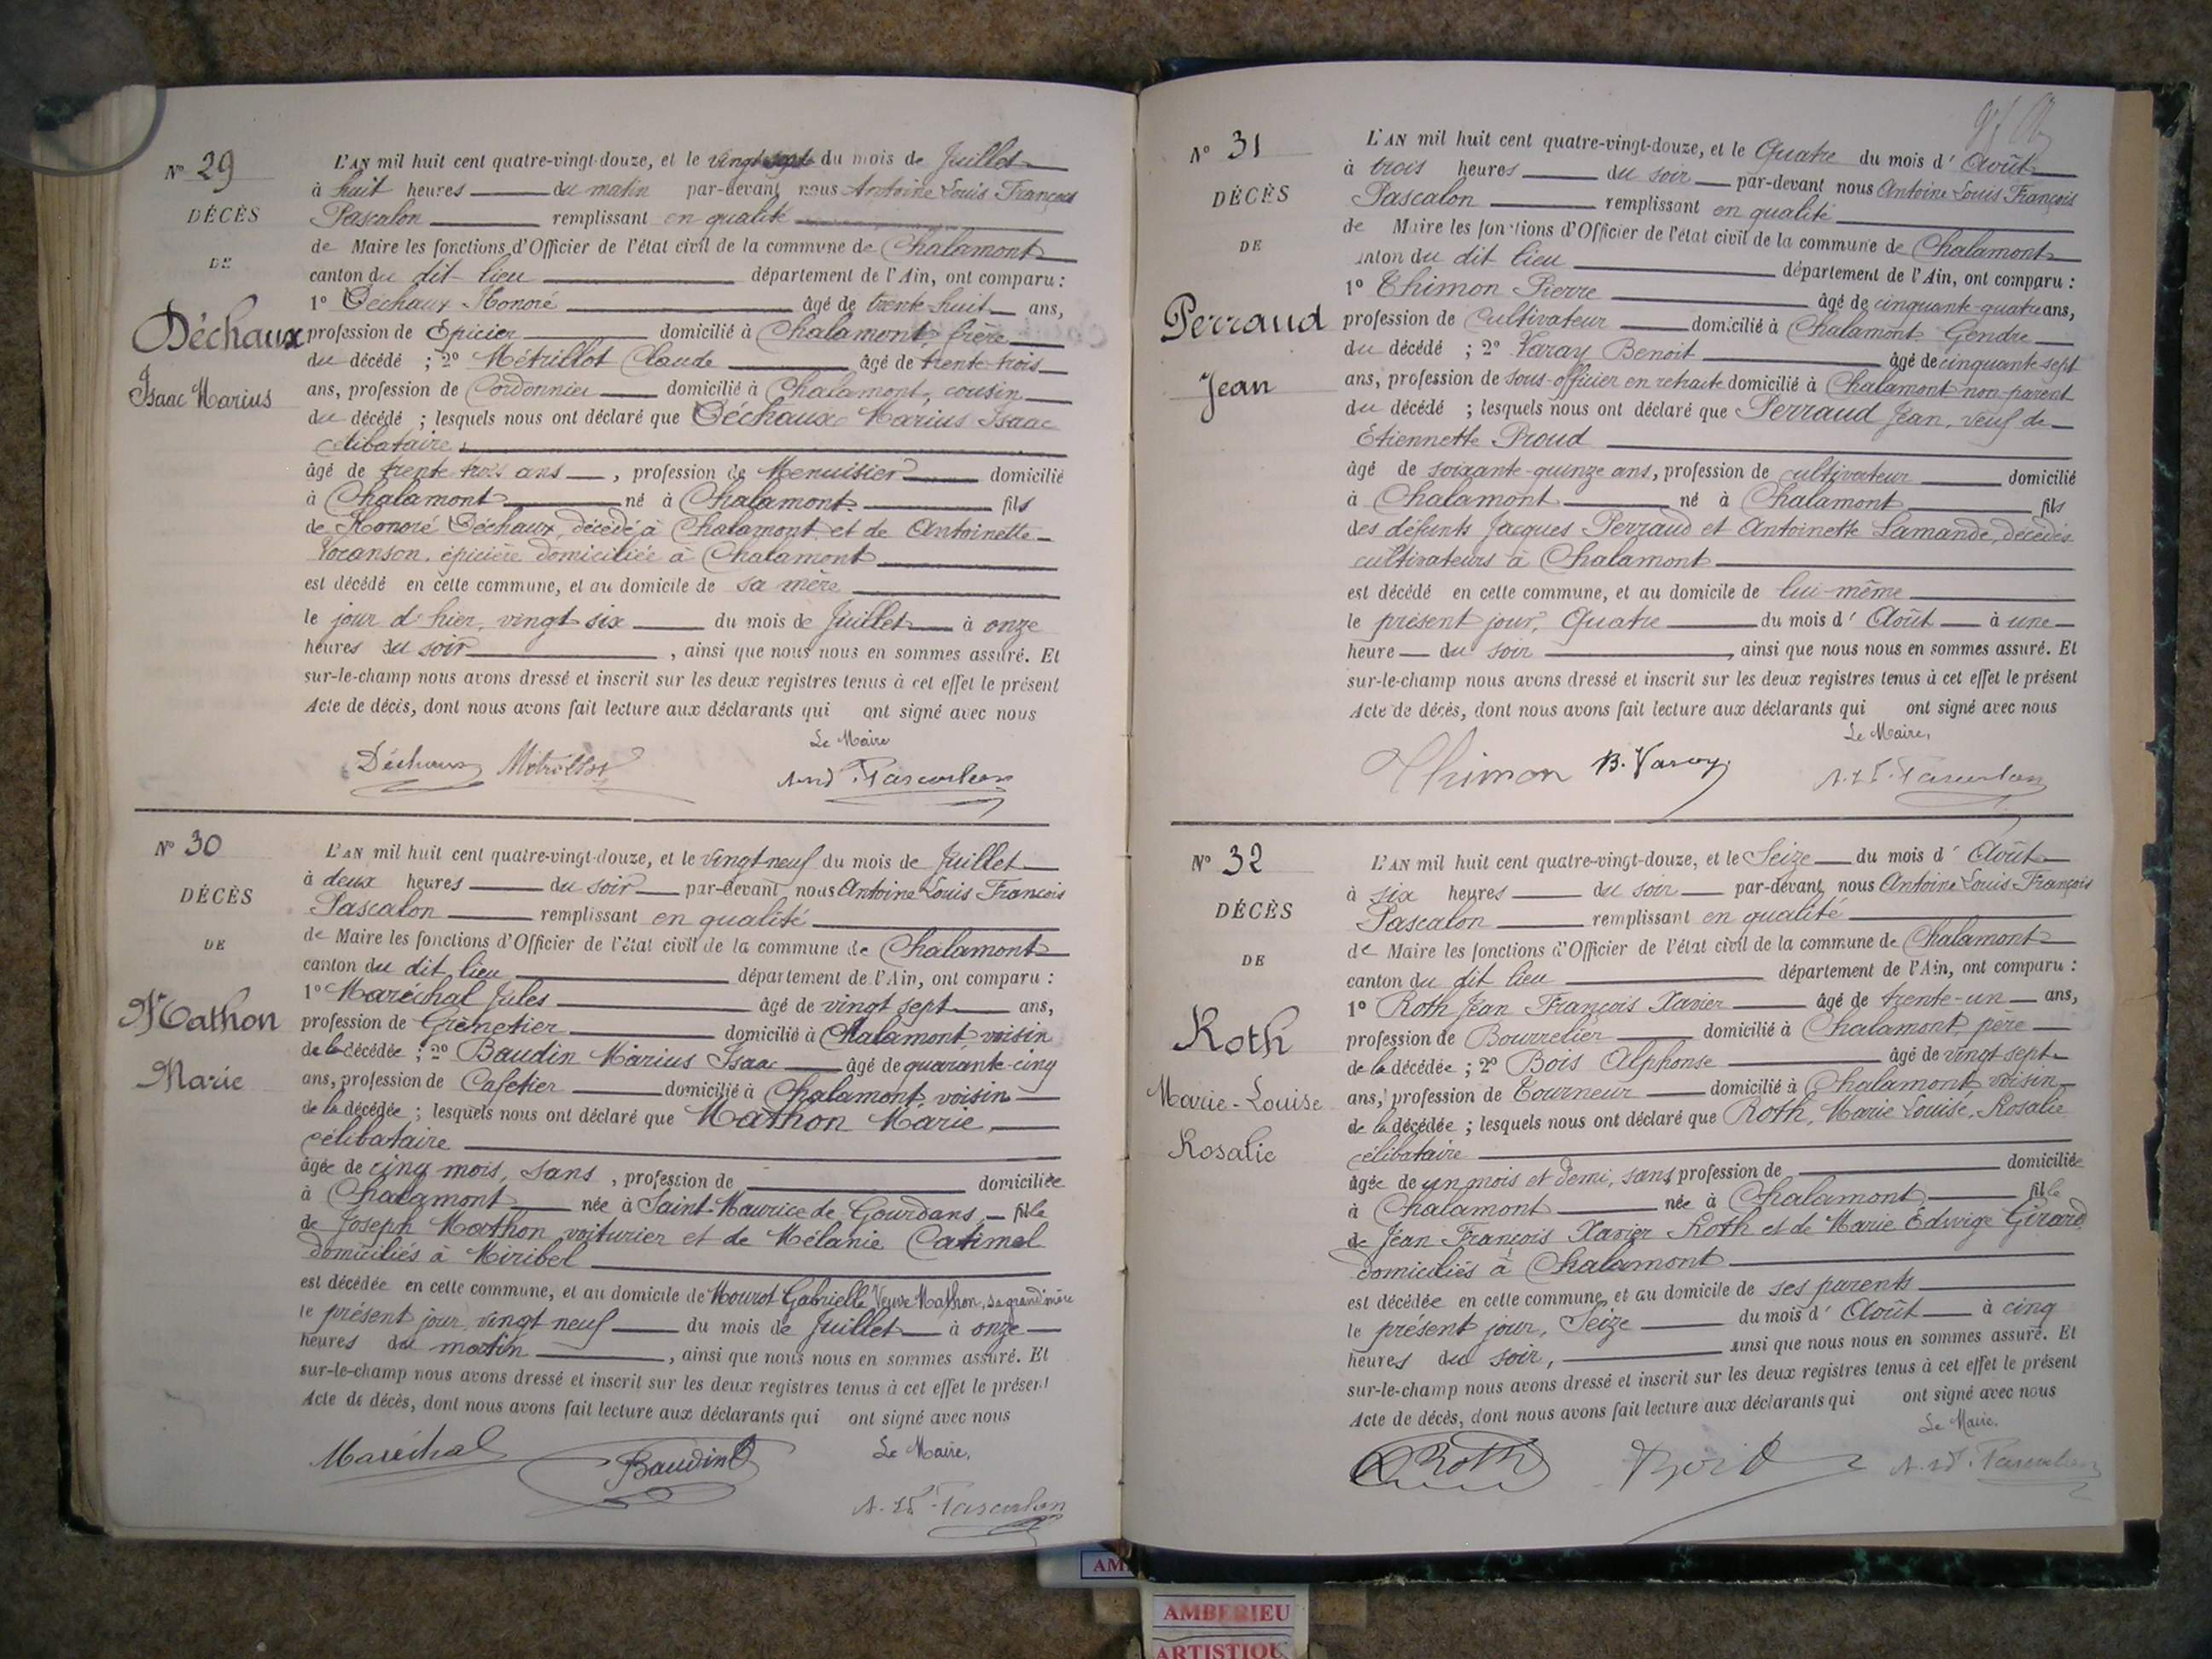 N° 29
DÉCÈS
DE
Déchaux
Isaac Marius
L'AN mil huit cent quatre-vingt-douze, et le vingt sept du mois de Juillet
à huit heures du matin par-devant nous Antoine Louis François
Pascalon remplissant en qualité
de Maire les fonctions d'Officier de l'état civil de la commune de Chalamont
canton du dit lieu département de l'Ain, ont comparu :
1° Déchaux Honoré âgé de trente-huit ans,
profession de Épicier domicilié à Chalamont, frère
du décédé ; 2° Métrillot Claude âgé de trente-trois
ans, profession de Cordonnier domicilié à Chalamont, cousin
du décédé ; lesquels nous ont déclaré que Déchaux Marius Isaac
célibataire,
âgé de trente trois ans, profession de Menuisier domicilié
à Chalamont né à Chalamont fils
de Honoré Déchaux, décédé à Chalamont et de Antoinette
Vocanson, épicière domiciliée à Chalamont
est décédé en cette commune, et au domicile de sa mère
le jour d'hier, vingt six du mois de Juillet à onze
heures du soir, ainsi que nous nous en sommes assuré. Et
sur-le-champ nous avons dressé et inscrit sur les deux registres tenus à cet effet le présent
Acte de décès, dont nous avons fait lecture aux déclarants qui ont signé avec nous
Le Maire
Déchaux Métrillot Pascalon
N° 30
DÉCÈS
DE
Mathon
Marie
L'AN mil huit cent quatre-vingt-douze, et le vingt neuf du mois de Juillet
à deux heures du soir par-devant nous Antoine Louis François
Pascalon remplissant en qualité
de Maire les fonctions d'Officier de l'état civil de la commune de Chalamont
canton du dit lieu département de l'Ain, ont comparu :
1° Maréchal Jules âgé de vingt sept ans,
profession de Grènetier domicilié à Chalamont, voisin
de la décédée ; 2° Baudin Marius Isaac âgé de quarante-cinq
ans, profession de Cafetier domicilié à Chalamont, voisin
de la décédée ; lesquels nous ont déclaré que Mathon Marie,
célibataire
âgée de cinq mois, sans, profession de domiciliée
à Chalamont née à Saint-Maurice de Gourdans, fille
de Joseph Mathon voiturier et de Mélanie Catimel
domiciliés à Miribel
est décédée en cette commune, et au domicile de Mourot Gabrielle Veuve Mathon, sa grand'mère
le présent jour, vingt neuf du mois de Juillet à onze
heures du matin, ainsi que nous nous en sommes assuré. Et
sur-le-champ nous avons dressé et inscrit sur les deux registres tenus à cet effet le présent
Acte de décès, dont nous avons fait lecture aux déclarants qui ont signé avec nous
Le Maire,
Maréchal Baudin
Pascalon
N° 31
DÉCÈS
DE
Perraud
Jean
L'AN mil huit cent quatre-vingt-douze, et le Quatre du mois d' Août
à trois heures du soir par-devant nous Antoine Louis François
Pascalon remplissant en qualité
de Maire les fonctions d'Officier de l'état civil de la commune de Chalamont
canton du dit lieu département de l'Ain, ont comparu :
1° Thimon Pierre âgé de cinquante-quatre ans,
profession de Cultivateur domicilié à Chalamont Gendre
du décédé ; 2° Varay Benoit âgé de cinquante-sept
ans, profession de sous-officier en retraite domicilié à Chalamont non-parent
du décédé ; lesquels nous ont déclaré que Perraud Jean, veuf de
Étiennette Proud
âgé de soixante-quinze ans, profession de cultivateur domicilié
à Chalamont né à Chalamont fils
des défunts Jacques Perraud et Antoinette Lamande, décédés
cultivateurs à Chalamont
est décédé en cette commune, et au domicile de lui-même
le présent jour, Quatre du mois d' Août à une
heure du soir, ainsi que nous nous en sommes assuré. Et
sur-le-champ nous avons dressé et inscrit sur les deux registres tenus à cet effet le présent
Acte de décès, dont nous avons fait lecture aux déclarants qui ont signé avec nous
Le Maire,
Thimon B. Varay Pascalon
N° 32
DÉCÈS
DE
Roth
Marie-Louise
Rosalie
L'AN mil huit cent quatre-vingt-douze, et le Seize du mois d' Août
à six heures du soir par-devant nous Antoine Louis François
Pascalon remplissant en qualité
de Maire les fonctions d'Officier de l'état civil de la commune de Chalamont
canton du dit lieu département de l'Ain, ont comparu :
1° Roth Jean François Xavier âgé de trente-un ans,
profession de Bourrelier domicilié à Chalamont, père
de la décédée ; 2° Bois Alphonse âgé de vingt sept
ans, profession de Tourneur domicilié à Chalamont, voisin
de la décédée ; lesquels nous ont déclaré que Roth, Marie Louise, Rosalie
célibataire
âgée de un mois et demi, sans profession de domiciliée
à Chalamont née à Chalamont, fille
de Jean François Xavier Roth et de Marie Edwige Girard
domiciliés à Chalamont
est décédée en cette commune, et au domicile de ses parents
le présent jour, Seize du mois d' Août à cinq
heures du soir, ainsi que nous nous en sommes assuré. Et
sur-le-champ nous avons dressé et inscrit sur les deux registres tenus à cet effet le présent
Acte de décès, dont nous avons fait lecture aux déclarants qui ont signé avec nous
Le Maire.
Roth Bois Pascalon
AMBERIEU
ARTISTIQU